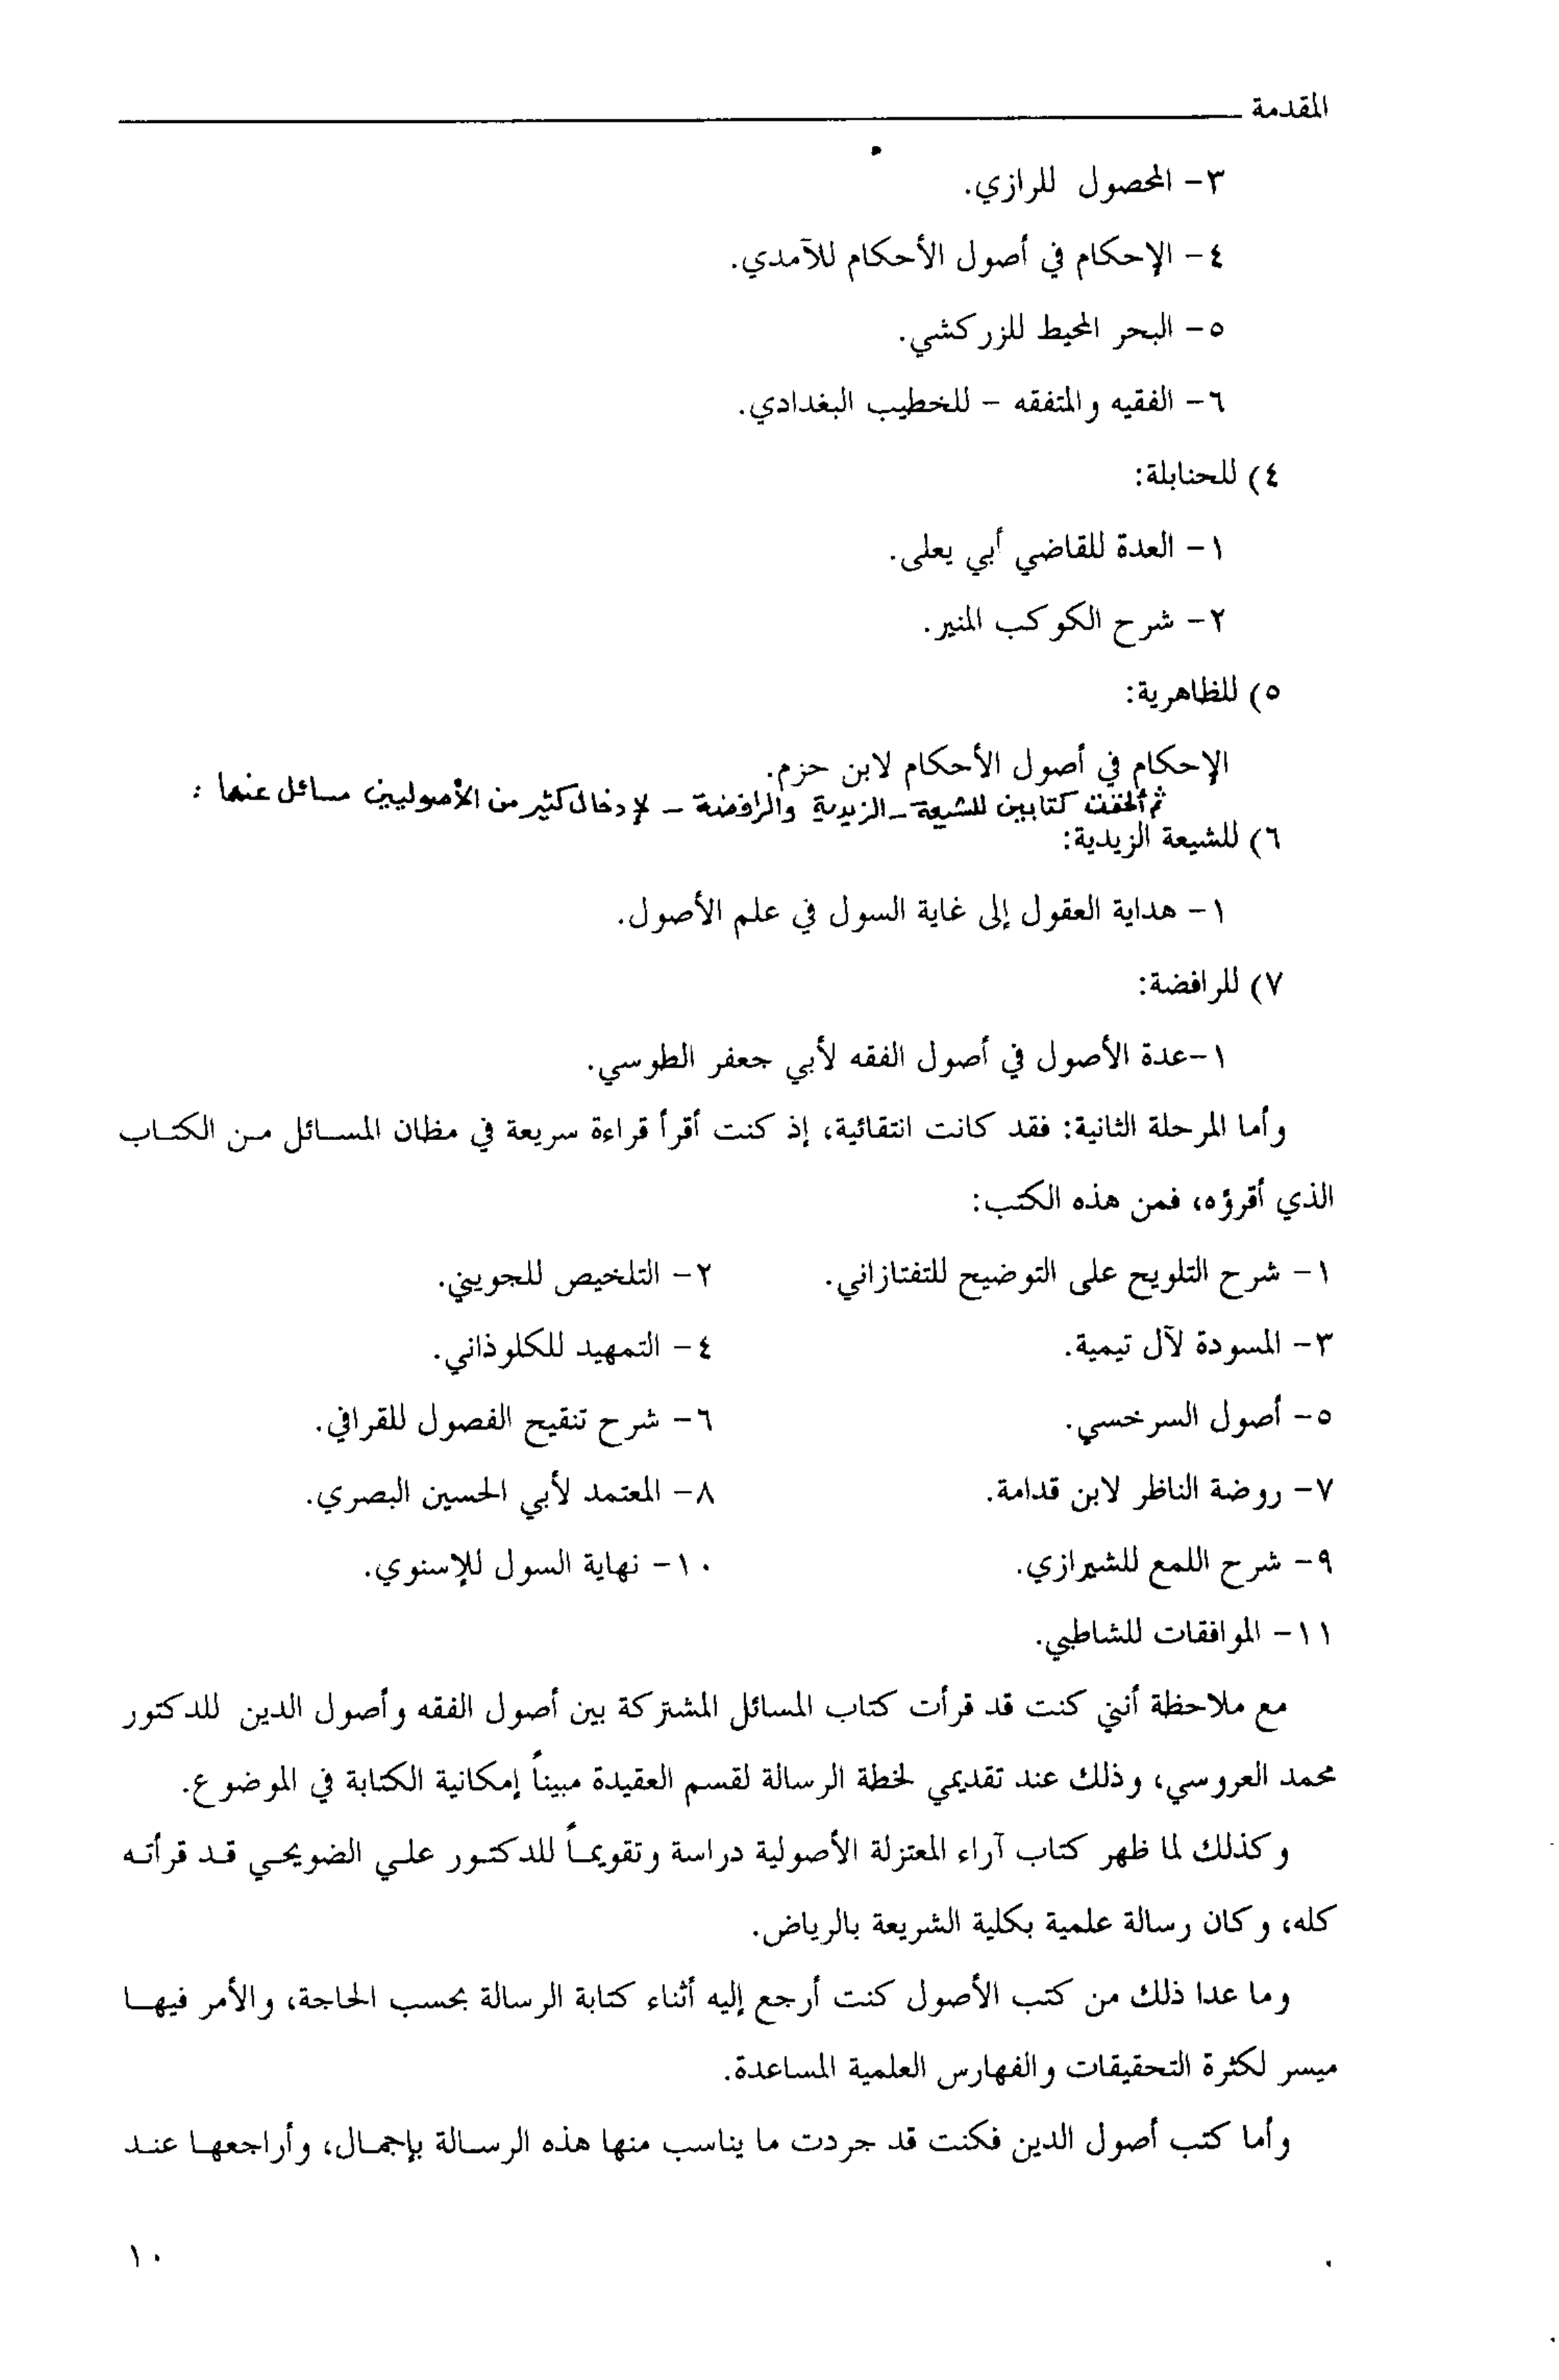 المقدمة
٣- المحصول للرازي.
٤- الإحكام في أصول الأحكام للآمدي.
٥- البحر المحيط للزركشي.
٦- الفقيه والمتفقه - للخطيب البغدادي.
٤) للحنابلة:
١- العدة للقاضي أبي يعلى.
٢- شرح الكوكب المنير.
٥) للظاهرية:
الإحكام في أصول الأحكام لابن حزم.
ثم ألحقت كتابين للشيعة - الزيدية والرافضة - لإدخال كثير من الأصوليين مسائل عنهما :
٦) للشيعة الزيدية:
١- هداية العقول إلى غاية السول في علم الأصول.
٧) للرافضة:
١-عدة الأصول في أصول الفقه لأبي جعفر الطوسي.
وأما المرحلة الثانية: فقد كانت انتقائية، إذ كنت أقرأ قراءة سريعة في مظان المسائل من الكتاب
الذي أقرؤه، فمن هذه الكتب:
١- شرح التلويح على التوضيح للتفتازاني. ٢- التلخيص للجويني.
٣- المسودة لآل تيمية. ٤- التمهيد للكلوذاني.
٥- أصول السرخسي. ٦- شرح تنقيح الفصول للقرافي.
٧- روضة الناظر لابن قدامة. ٨- المعتمد لأبي الحسين البصري.
٩- شرح اللمع للشيرازي. ١٠- نهاية السول للإسنوي.
١١- الموافقات للشاطبي.
مع ملاحظة أنني كنت قد قرأت كتاب المسائل المشتركة بين أصول الفقه وأصول الدين للدكتور
محمد العروسي، وذلك عند تقديمي لخطة الرسالة لقسم العقيدة مبيناً إمكانية الكتابة في الموضوع.
وكذلك لما ظهر كتاب آراء المعتزلة الأصولية دراسة وتقويماً للدكتور علي الضويحي قد قرأته
كله، وكان رسالة علمية بكلية الشريعة بالرياض.
وما عدا ذلك من كتب الأصول كنت أرجع إليه أثناء كتابة الرسالة بحسب الحاجة، والأمر فيها
ميسر لكثرة التحقيقات والفهارس العلمية المساعدة.
وأما كتب أصول الدين فكنت قد جردت ما يناسب منها هذه الرسالة بإجمال، وأراجعها عند
١٠